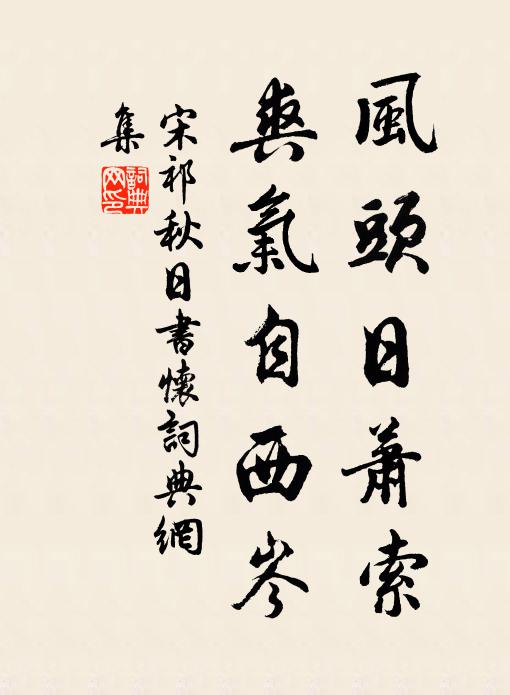 風頭日蕭索
爽氣自西岑
宋祁秋日書懷詞典網
集
詞典
网印